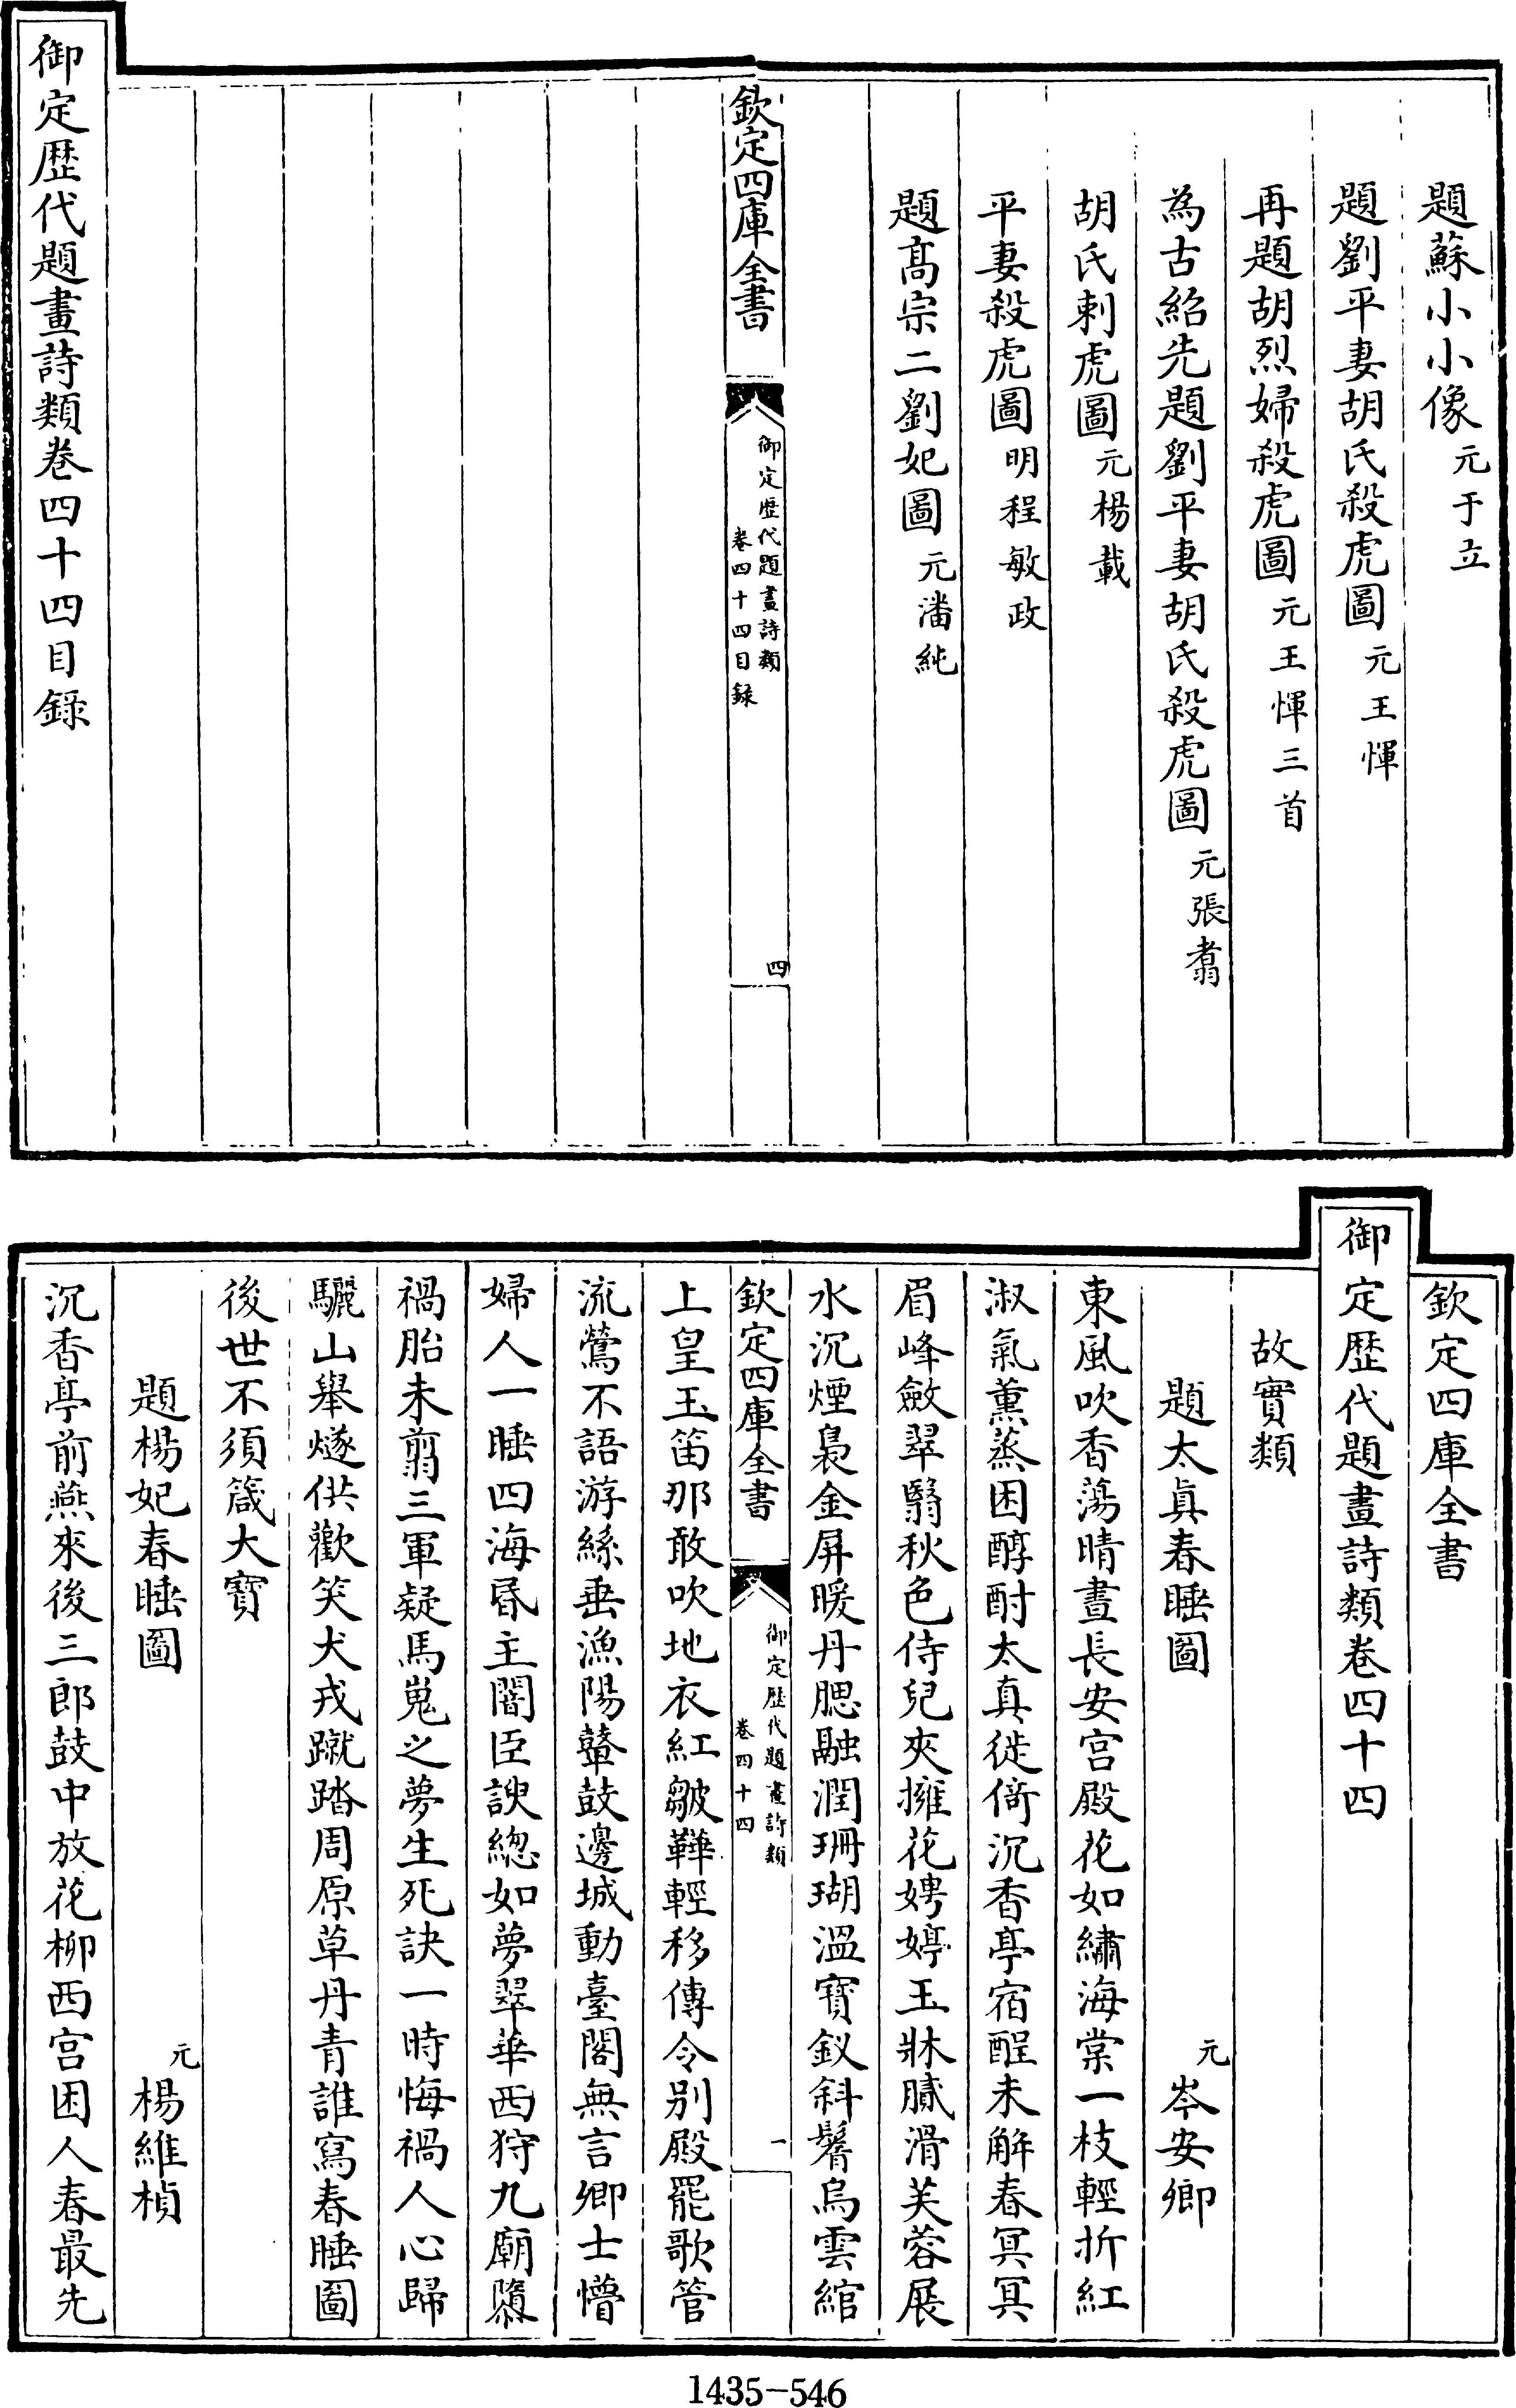 題蘇小小像元于立
題劉平妻胡氏殺虎圖元王惲
再題胡烈婦殺虎圖元王惲三首
為古紹先題劉平妻胡氏殺虎圖元張翥
胡氏刺虎圖元楊載
平妻殺虎圖明程敏政
題髙宗二劉妃圖元潘純
欽定四庫全書
御定歴代題畫詩類
卷四十四目録
四
御定歴代題畫詩類卷四十四目録
欽定四庫全書
御定歴代題畫詩類卷四十四
故實類
題太真春睡圖
元岑安卿
東風吹香蕩晴晝長安宫殿花如繡海棠一枝輕折紅
淑氣薰蒸困醇酎太真徙倚沉香亭宿酲未解春冥冥
眉峰斂翠翳秋色侍兒夾擁花娉婷玉牀膩滑芙蓉展
水沉煙裊金屏暖丹腮融潤珊瑚溫寳釵斜鬌烏雲綰
欽定四庫全書
御定歴代題畫詩類
卷四十四
一
上皇玉笛那敢吹地衣紅皺鞾輕移傳令别殿罷歌管
流鶯不語游絲垂漁陽鼙鼓邊城動臺閣無言卿士懵
婦人一睡四海昬主闇臣諛緫如夢翠華西狩九廟隳
禍胎未翦三軍疑馬嵬之夢生死訣一時悔禍人心歸
驪山舉燧供歡笑犬戎蹴踏周原草丹青誰寫春睡圖
後世不須箴大寳
題楊妃春睡圖
元楊維楨
沉香亭前燕來後三郎鼓中放花柳西宫困人春最先
1435-546